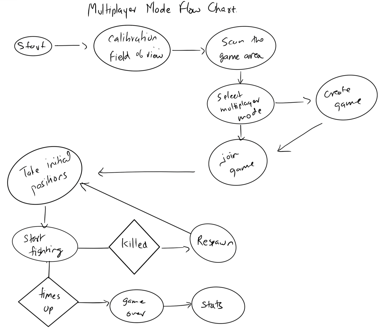 Multiplayer Mode Flow Chart
Start
Calibration
Field of view
Scan the
game area
Select
multiplayer
mode
Create
game
join
game
Take initial
positions
Start
fighting
killed
Respawn
times
up
game
over
Stats